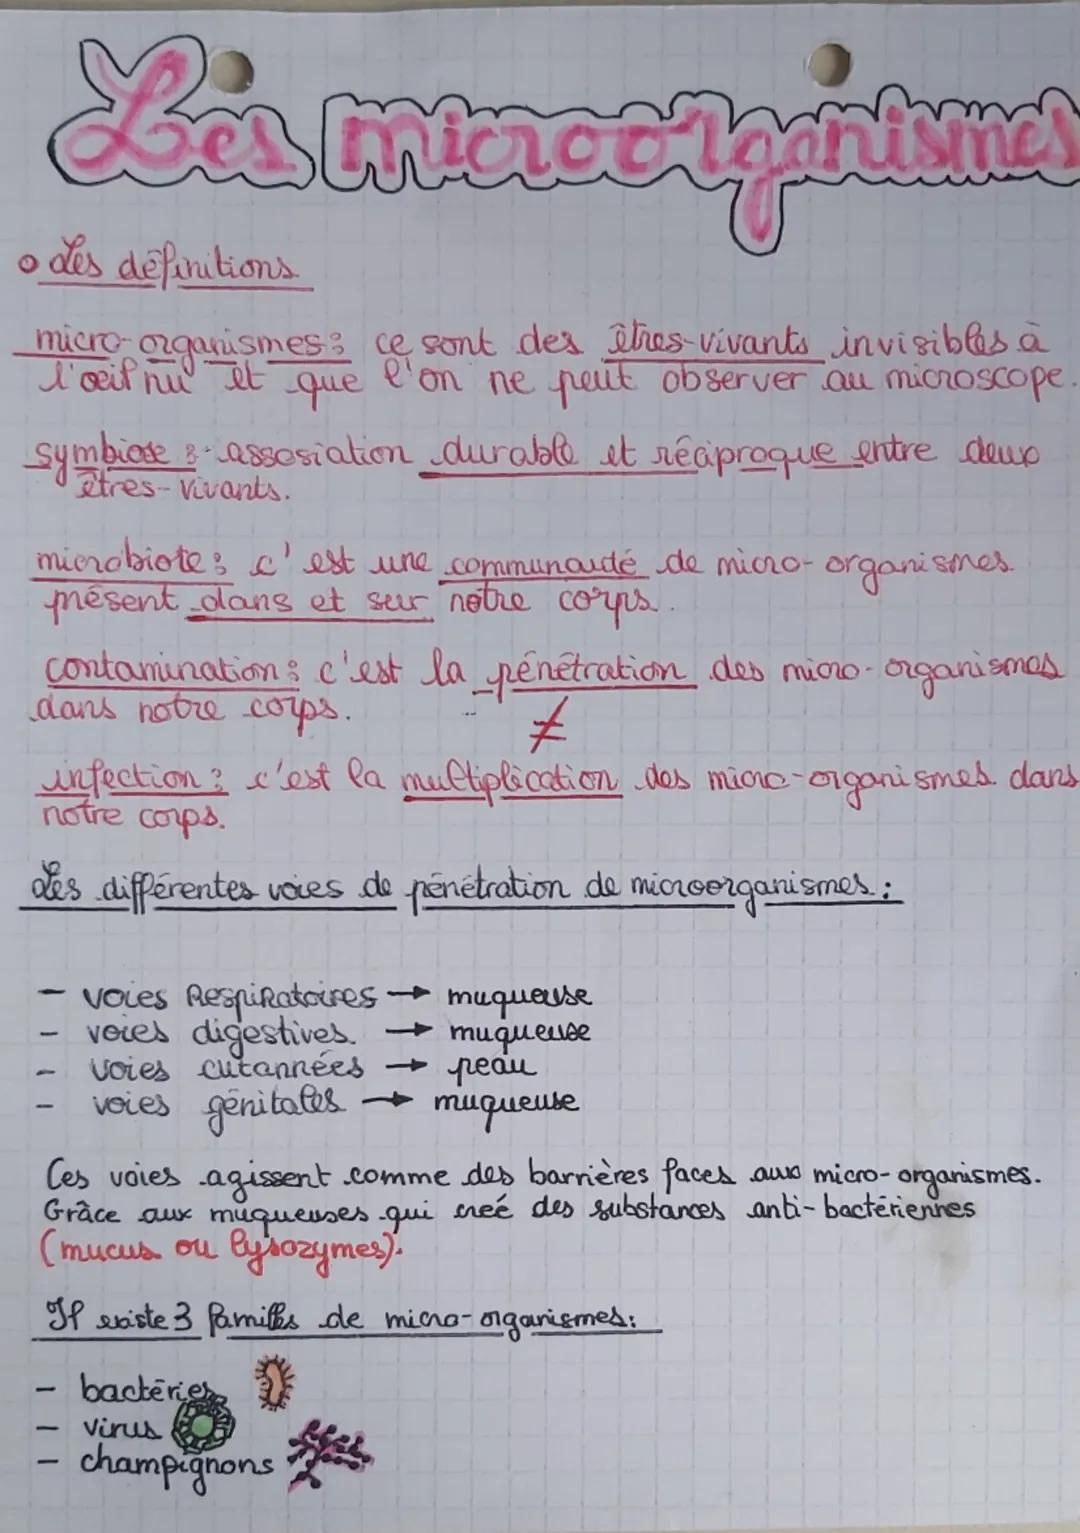 Les microorganismes
o Les définitions
micro-organismes: ce sont des êtres-vivants invisibles à
l'œil nu et que l'on ne peut observer au microscope.
symbiose : assosiation durable et réciproque entre deux
êtres-vivants.
microbiote: c'est une communauté de micro-organismes
présent dans et sur notre corps.
contamination: c'est la pénétration des micro-organismes
dans notre corps.
≠
infection: c'est la multiplication des micro-organismes dans
notre corps.
Les différentes voies de pénétration de microorganismes :
- voies Respiratoires → muqueuse
- voies digestives → muqueuse
- voies cutannées → peau
- voies génitales → muqueuse
Ces voies agissent comme des barrières faces aux micro-organismes.
Grâce aux muqueuses qui créé des substances anti-bactériennes
(mucus ou lysozymes).
Il existe 3 familles de micro-organismes:
- bactéries
- virus
- champignons